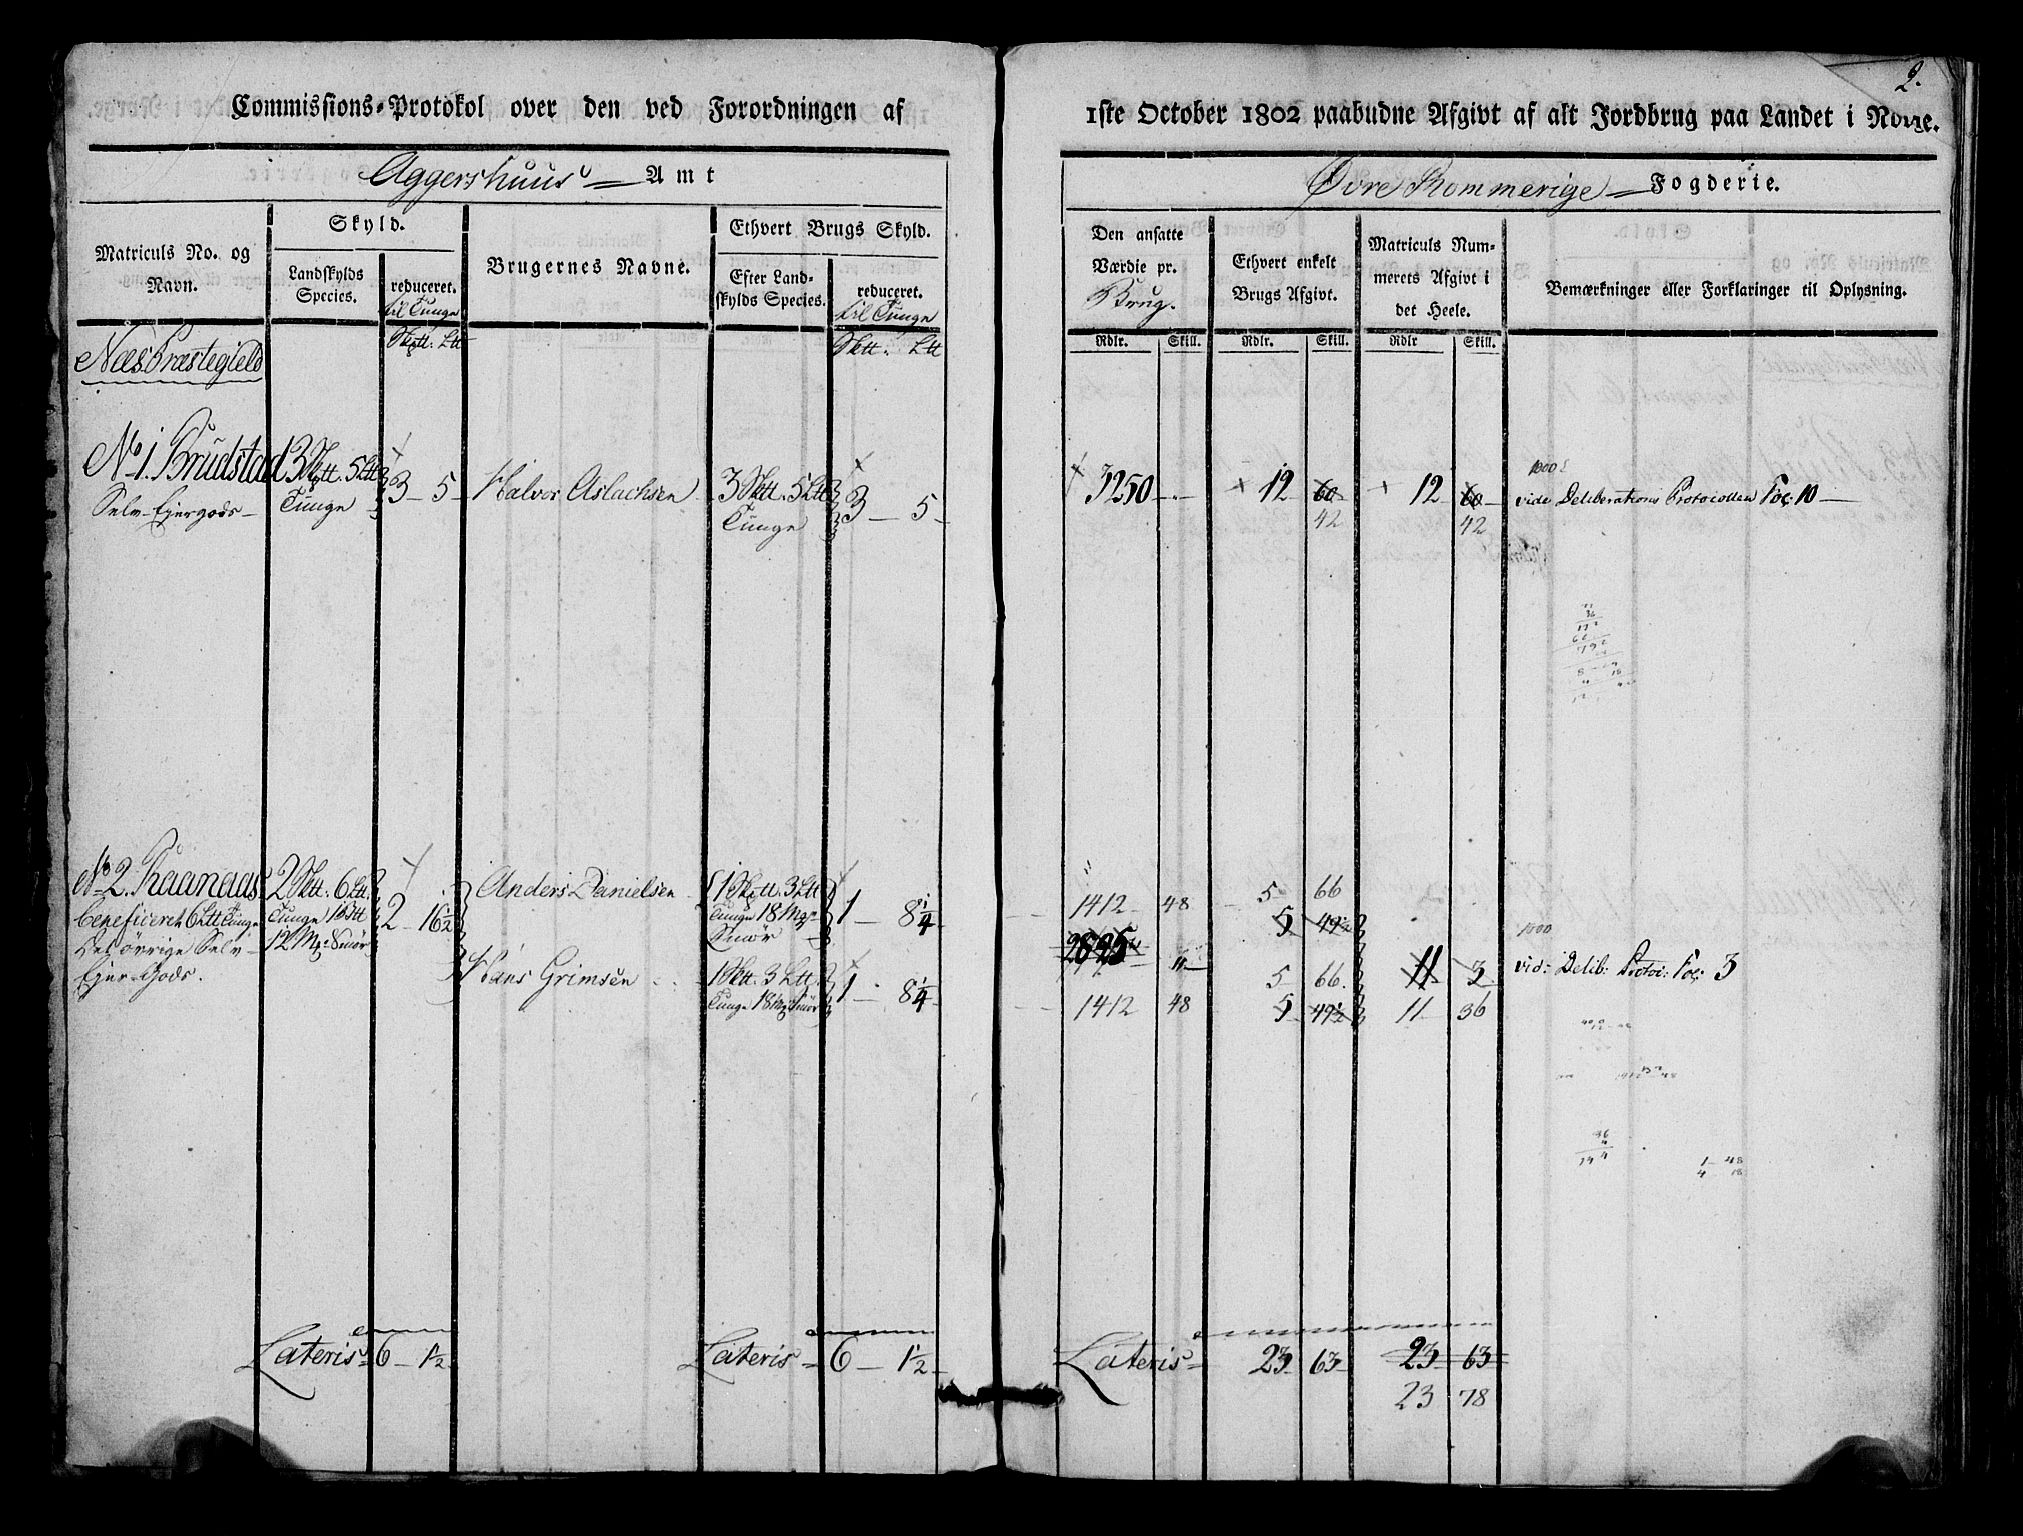 2.
Commissions-Protokol over den ved Forordningen af 1ste October 1802 paabudne Afgivt af alt Jordbrug paa Landet i Norge.
Aggershuus Amt
Øvre Rommerige Fogderie.
Matriculs No. og Navn.
Skyld.
Landskylds Species.
reduceret. til Tunge
Brugernes Navne.
Ethvert Brugs Skyld.
Efter Landskylds Species.
reduceret. til Tunge
Den ansatte Værdie pr. Brug.
Ethvert enkelt Brugs Afgivt.
Matriculs Nummerets Afgivt i det Heele.
Bemærkninger eller Forklaringer til Oplysning.
Sktt. Ltt
Sktt. Ltt
Rdlr. Skill. Rdlr. Skill. Rdlr Skill.
Næs Præstegield
No 1. Brudstad 3 Sktt. 5 Ltt 3 - 5 - Halvor Aslachsen 3 Sktt. 5 Ltt 3 - 5 -
Selv-Ejergods - Tunge Tunge
3250 - 12 60 12 60
42 42
1000
vide Deliberations Protocollen Fol: 10 -
No 2. Raanaas 2 Sktt. 6 Ltt 2 - 16 1/2 Anders Danielsen 1 Sktt. 3 Ltt 1 - 8 1/4
beneficeret 6 Ltt Tunge Tunge 1 Btt Tunge 18 Mp
Det øvrige Selv- 12 Mp Smør Smør
Ejer-Gods.
Hans Grimsen 1 Sktt. 3 Ltt 1 - 8 1/4
Tunge 18 Mp Smør
1412 48 5 66
5 49 1/2
2825
5 66 11 3
1412 48 5 49 1/2 11 36
1000
vid: Delib: Protoc: Fol: 3
Lateris 6 - 1/2 Lateris 6 - 1/2
Lateris 23 63 23 63
23 78